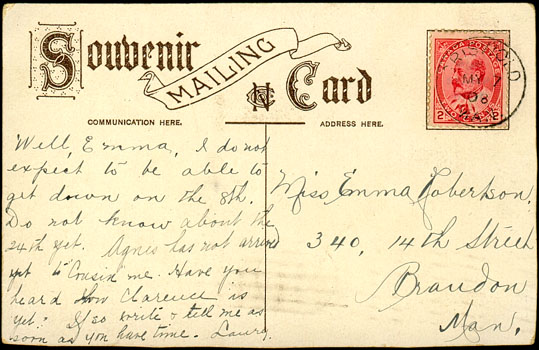 Souvenir
MAILING
Card
COMMUNICATION HERE.
ADDRESS HERE.
CANADA POSTAGE
2
2
MY
08
Well, Emma, I do not
expect to be able to
get down on the 8th.
Do not know about the
24th yet. Agnes has not arrived
yet to Cousin me. Have you
heard how Clarence is
yet? If so write & tell me as
soon as you have time. Laura.
Miss Emma Robertson.
340, 14th Street
Brandon
Man.